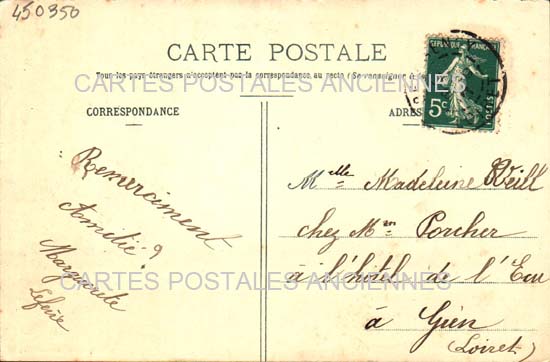 450350
CARTE POSTALE
Tous les pays étrangers n'acceptent pas la correspondance au recto (Se renseigner à
CARTES POSTALES ANCIENNES
CORRESPONDANCE
ADRES
REPUBLIQUE FRANÇAISE
5c
POSTES
Remerciment
Amitié
Marguerite
Mlle Madeleine Weill
chez Mme Porcher
à l'hôtel de l'Eau
à Gien
(Loiret)
CARTES POSTALES ANCIENNES